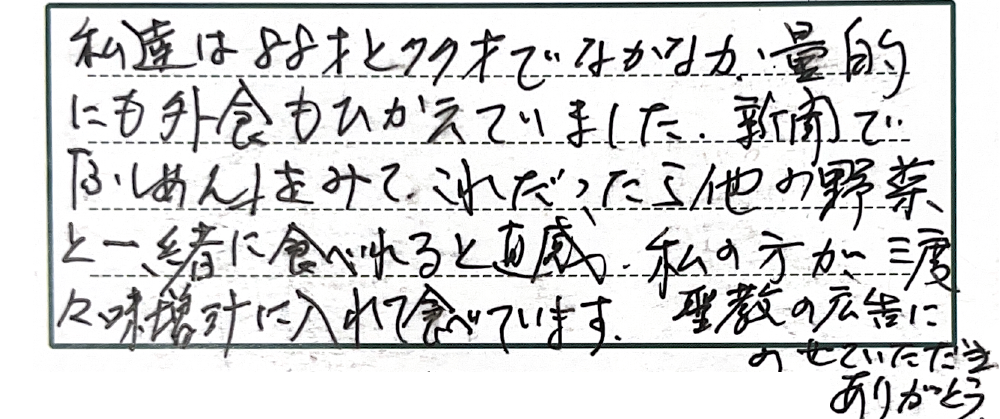 私達は88才と77才でなかなか量的
にも外食もひかえていました。新聞で
「ふしめん」をみて、これだったら他の野菜
と一緒に食べれると直感、私の方が三度
々味噌汁に入れて食べています。聖教の広告に
のせていただき
ありがとう